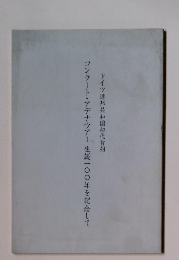 ドイツ連邦共和国初代首相
コンラート・アデナウアー生誕一〇〇年を記念して